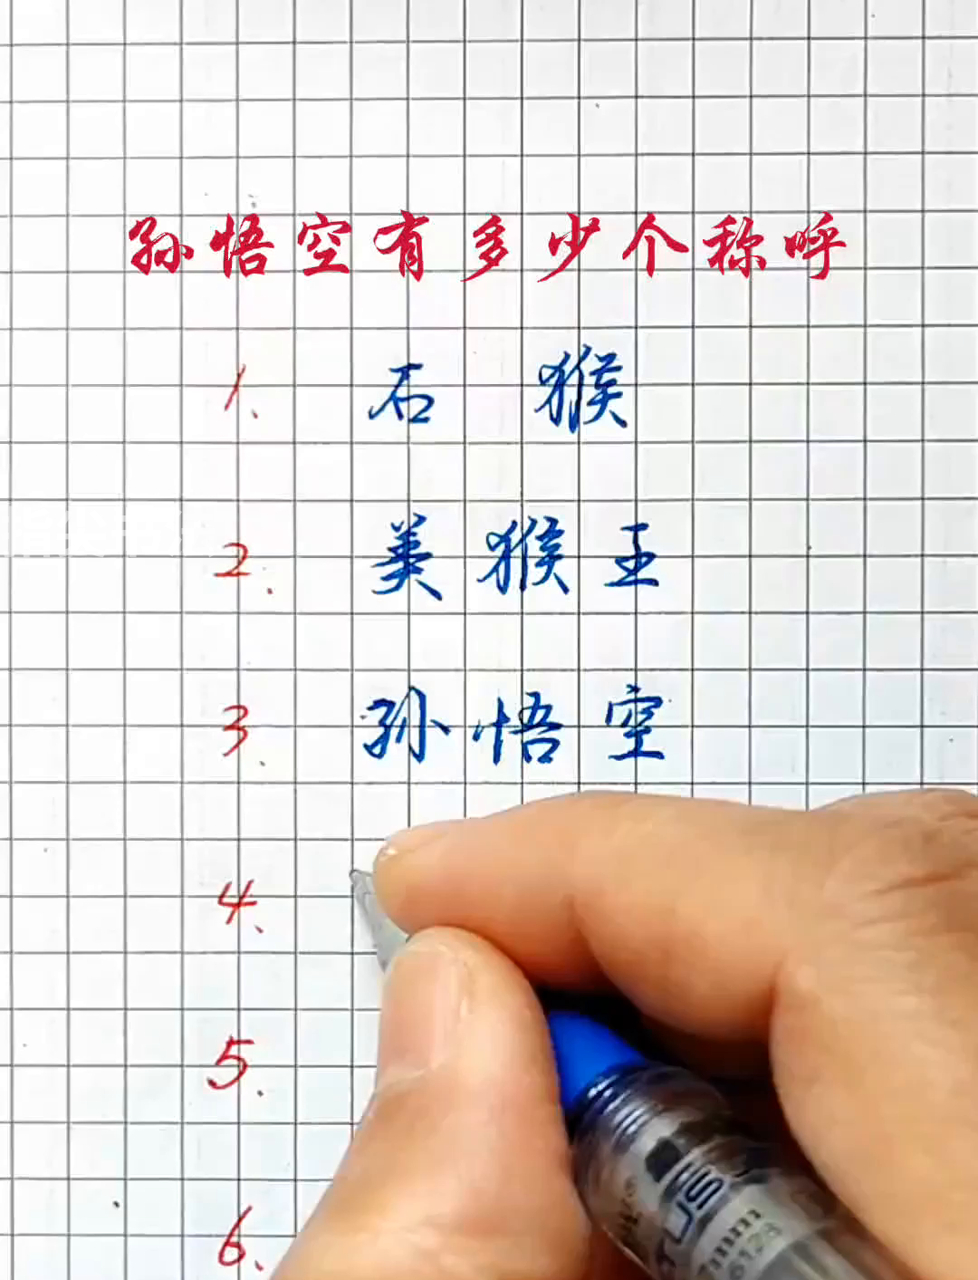 孙悟空有多少个称呼
1、 石猴
2、 美猴王
3、 孙悟空
4、
5、
6、